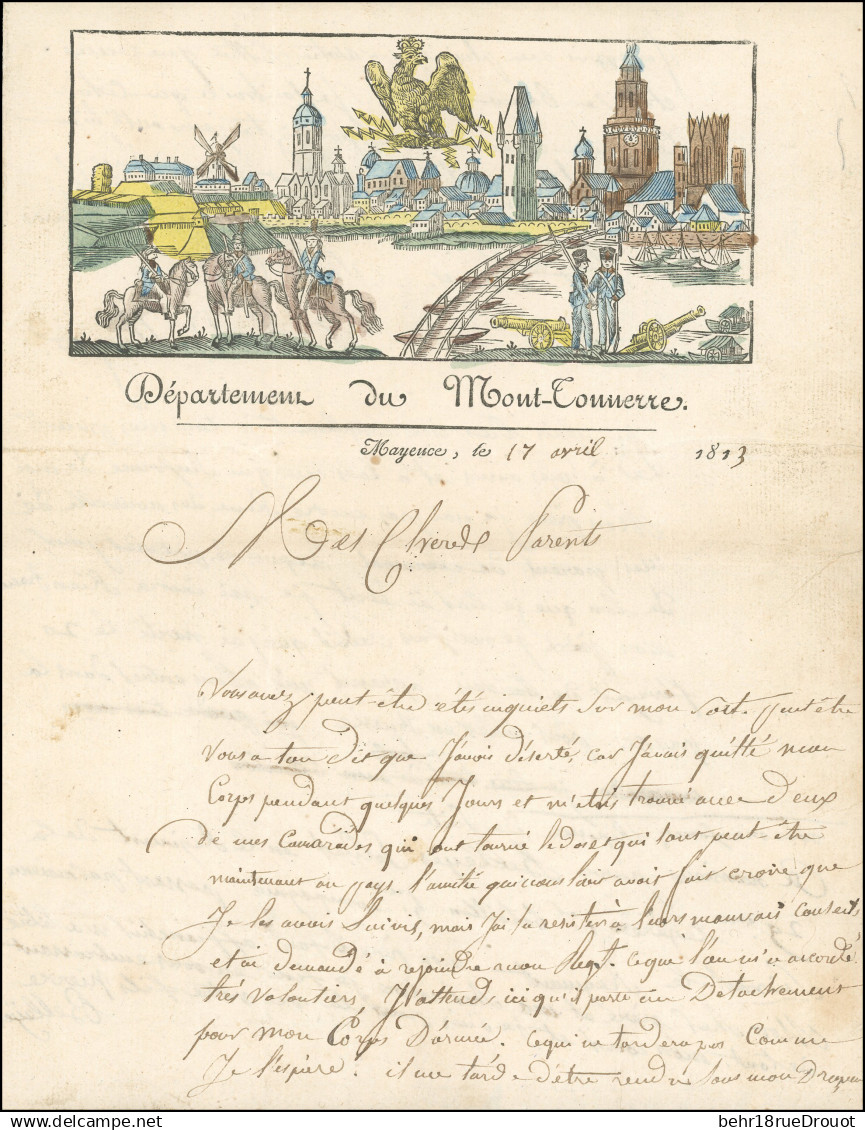 Département du Mont-Tonnerre.
Mayence, le 17 avril 1813
Mes Chered Parents
Vous avez peut-être étés inquiets sur mon sort. peut être
vous a ton dit que J'avois déserté, car J'avais quitté mon
Corps pendant quelques Jours et m'étois trouvé avec Deux
de mes Camarades qui ont tourné le dos et qui sont peut-être
maintenant au pays. l'amitié qui nous lioit avoit fait croire que
Je les avois Suivis, mais J'ai su resister à leurs mauvais Conseils,
et ai demandé à rejoindre mon Regt. ce que l'on m'a accordé
très volontiers. J'attends ici qu'il parte un Detachement
pour mon Corps D'armée. ce qui ne tardera pas Comme
Je l'espère. il me tarde d'être rendu Sous mon Drapeau
behr18rueDrouot